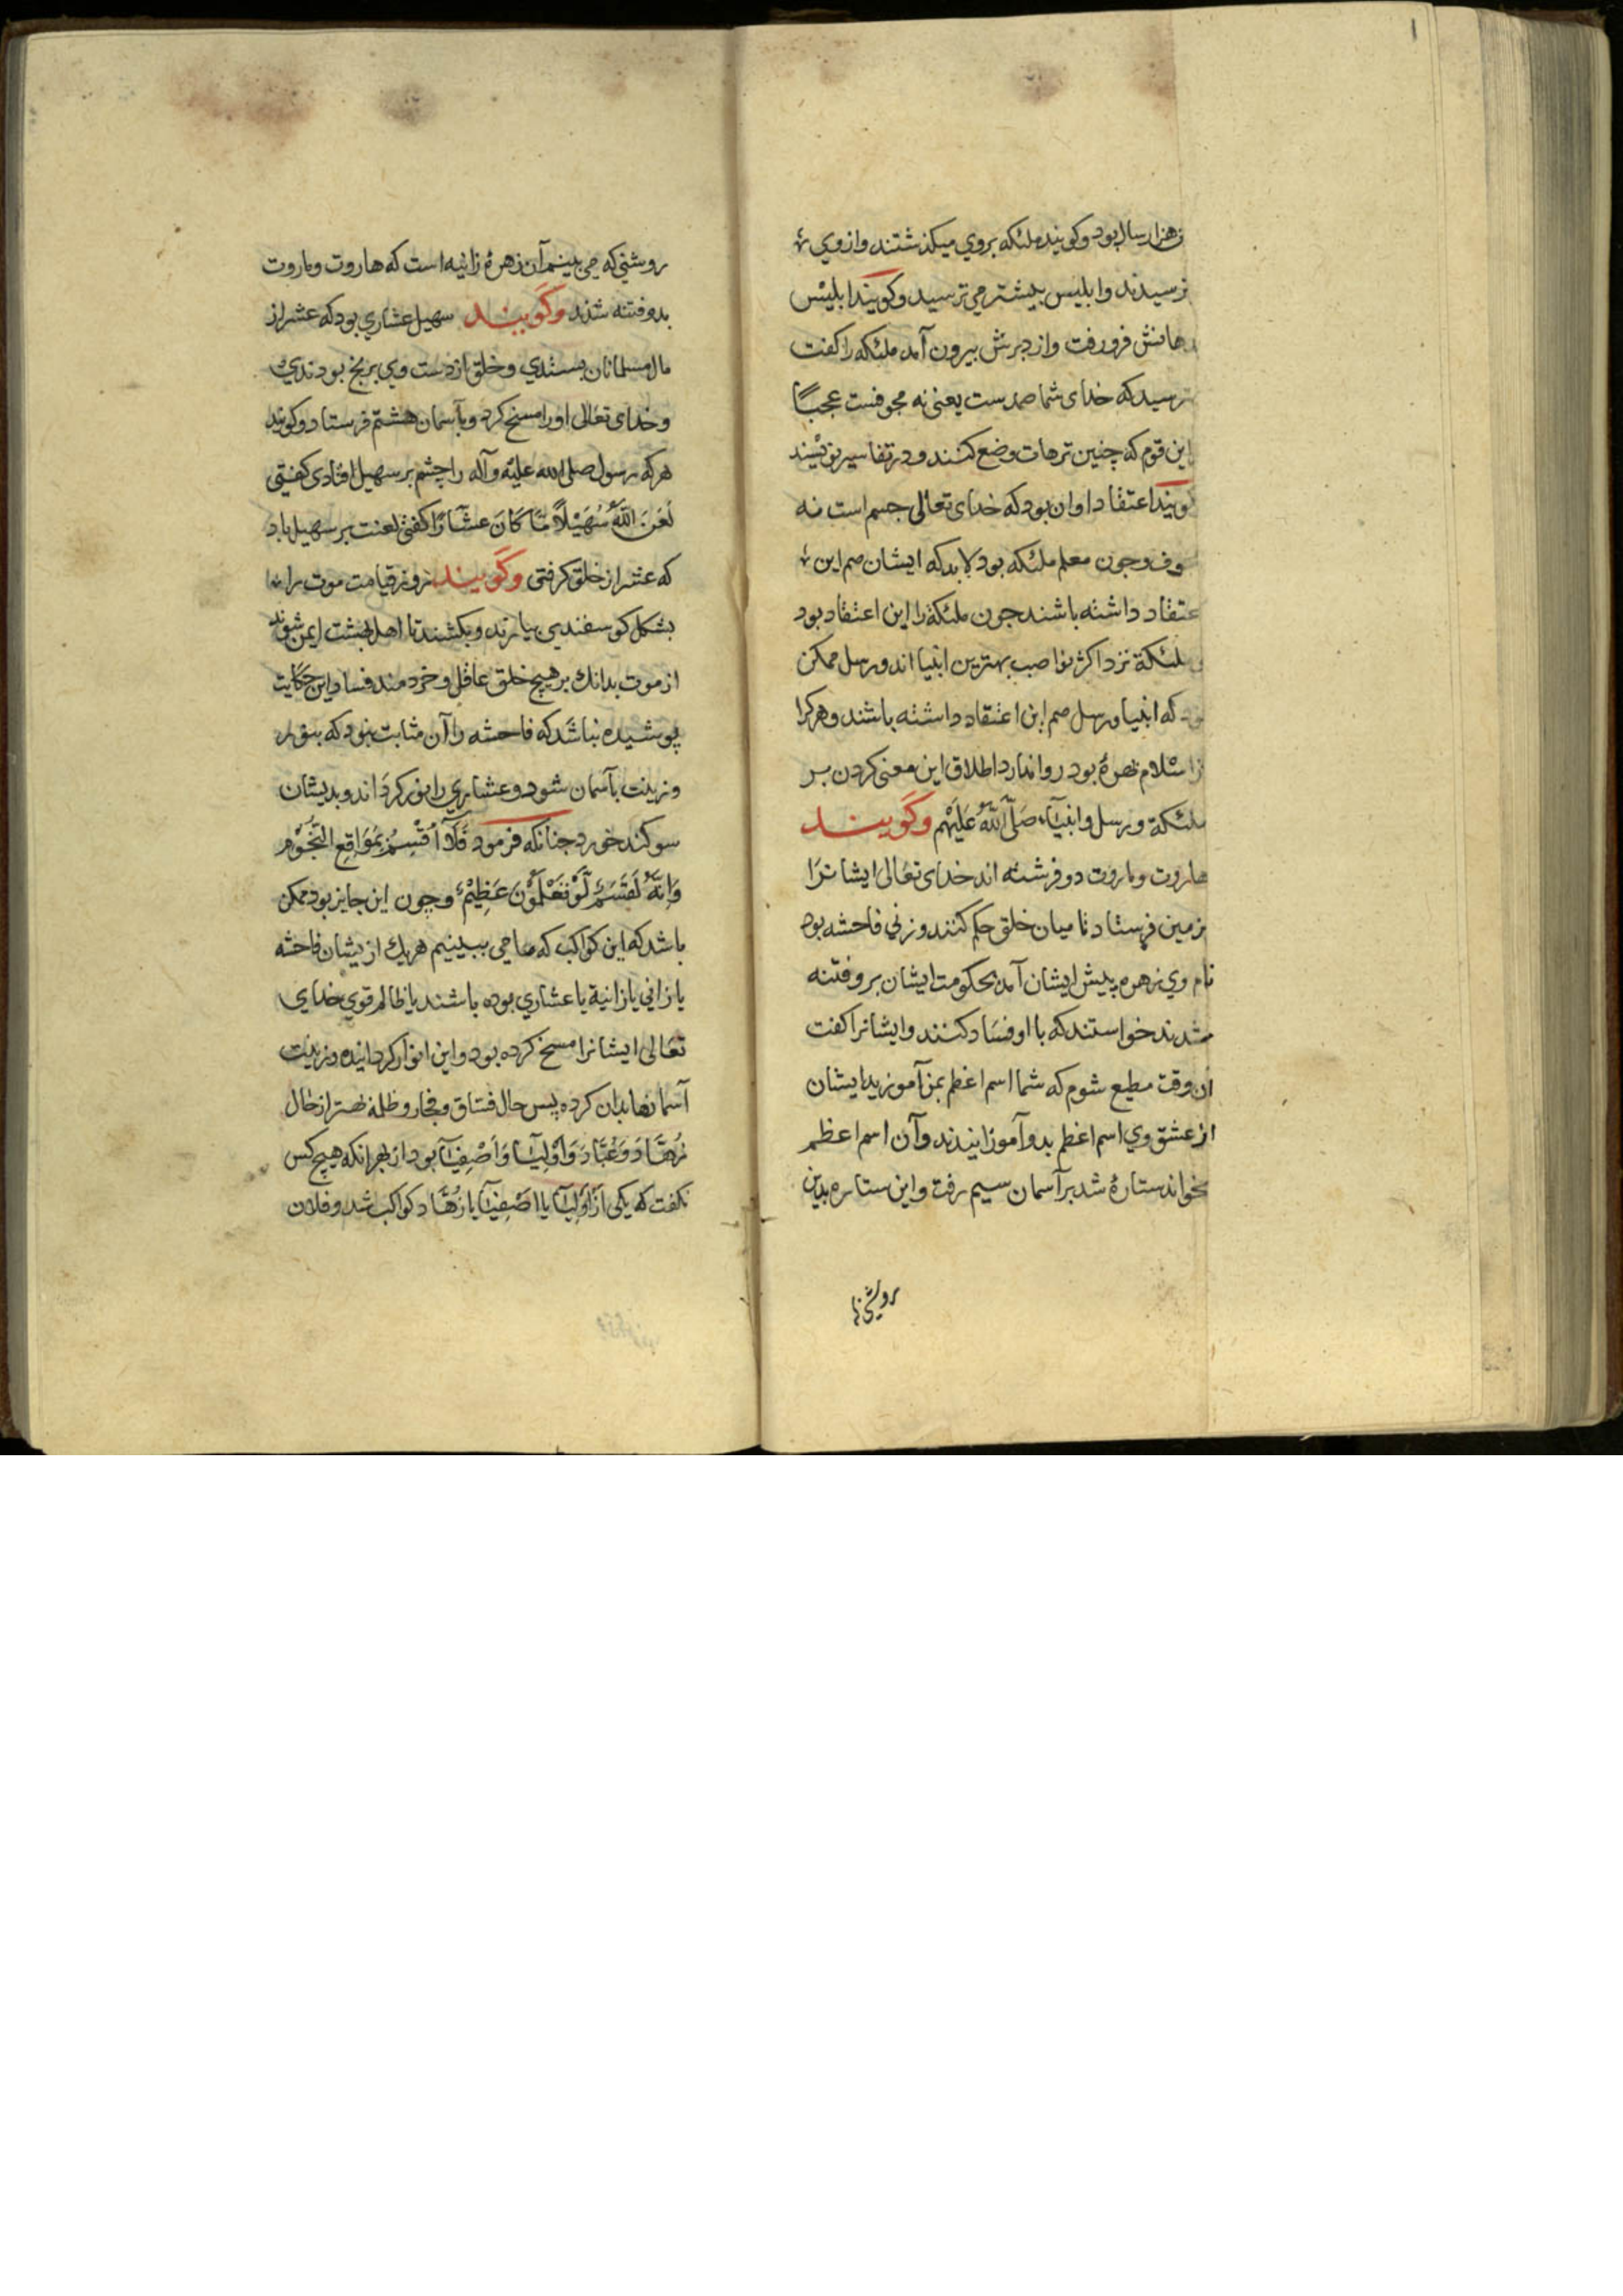 هزار سال بود و کویند ملئکه بروی میکذشتند و از وی
ترسیدند و ابلیس بیشتر می ترسید و کویند ابلیس
دهانش فرو رفت و از دبرش بیرون آمد ملئکه را کفت
مترسید که خدای شما صمدست یعنی نه مجوفست عجبًا
این قوم که چنین ترهات وضع کنند و در تفاسیر نویسند
کویند اعتقاد او ان بود که خدای تعالی جسم است نه
جوف و جون معلم ملئکه بود لابد که ایشان هم این
اعتقاد داشته باشند جون ملئکة را این اعتقاد بود
و ملئکة نزد اکثر نواصب بهترین انبیا اند و رسل ممکن
بود که انبیا و رسل هم این اعتقاد داشته باشند و هرکرا
از اسلام بهرهٔ بود روا ندارد اطلاق این معنی کردن بر
ملئکة و رسل و انبیآء صَلَّی اللّهُ عَلَیْهِم وکویند
هاروت و ماروت دو فرشته اند خدای تعالی ایشانرا
بزمین فرستاد تا میان خلق حکم کنند و زنی فاحشه بود
نام وی زهره پیش ایشان آمد بحکومت ایشان برو فتنه
شدند خواستند که با او فساد کنند و ایشانرا کفت
آن وقت مطیع شوم که شما اسم اعظم بمن آموزید ایشان
از عشق وی اسم اعظم بدو آموزانیدند و آن اسم اعظم
بخواند ستارهٔ شد بر آسمان سیم رفت و این ستاره بدین
روشنی
روشنی که می بینیم آن زهرهٔ زانیه است که هاروت و ماروت
بدو فتنه شدند وکویند سهیل عشاری بود که عشر از
مال مسلمانان بستدی و خلق از دست وی برنج بودندی
و خدای تعالی او را مسخ کرد و بآسمان هشتم فرستاد و کویند
هرکه رسول صلی الله علیه وآله را چشم بر سهیل افتادی کفتی
لَعَنَ اللّهُ سُهَیْلاً مَا کَانَ عشَّارًا کفتی لعنت بر سهیل باد
که عشر از خلق کرفتی وکویند روز قیامت موت را
بشکل کوسفندی بیارند و بکشند تا اهل بهشت ایمن شوند
از موت بدانك بر هیچ خلق عاقل و خردمند فساد این حکایت
پوشیده نباشد که فاحشه را آن مثابت نبود که بنور
و زینت بآسمان شود و عشاری را نور کرد اند و بدیشان
سوکند خورد جنانکه فرمود فَلَآ اُقْسِمُ بِمَوَاقِعِ النُّجُوْمِ
وَاِنَّهُ لَقَسَمٌ لَّوْ تَعْلَمُوْنَ عَظِیْمٌ و چون این جایز بود ممکن
باشد که این کواکب که ما می ببینیم هریك ازیشان فاحشه
یا زانی یا زانیة یا عشاری بوده باشند یا ظالم قوی خدای
تعالی ایشانرا مسخ کرده بود و این انوار کردانیده و زینت
آسمانها بدان کرده پس حال فساق و فجار و ظلمه بهتر از حال
زُهَّادَ وَ عُبَّادَ وَ اَوْلِیَآ وَ اَصْفِیَآ بود از بهر انکه هیچ کس
نکفت که یکی از اَوْلِیَآ یا اَصْفِیَآ یا زُهَّاد کواکب شد و فلان